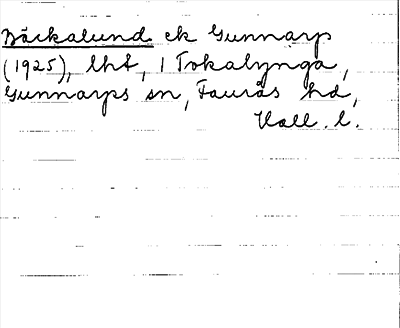 Bäckalund ek Gunnarp
(1925), lht, 1 Tokalynga,
Gunnarps sn, Faurås hd,
Hall. l.